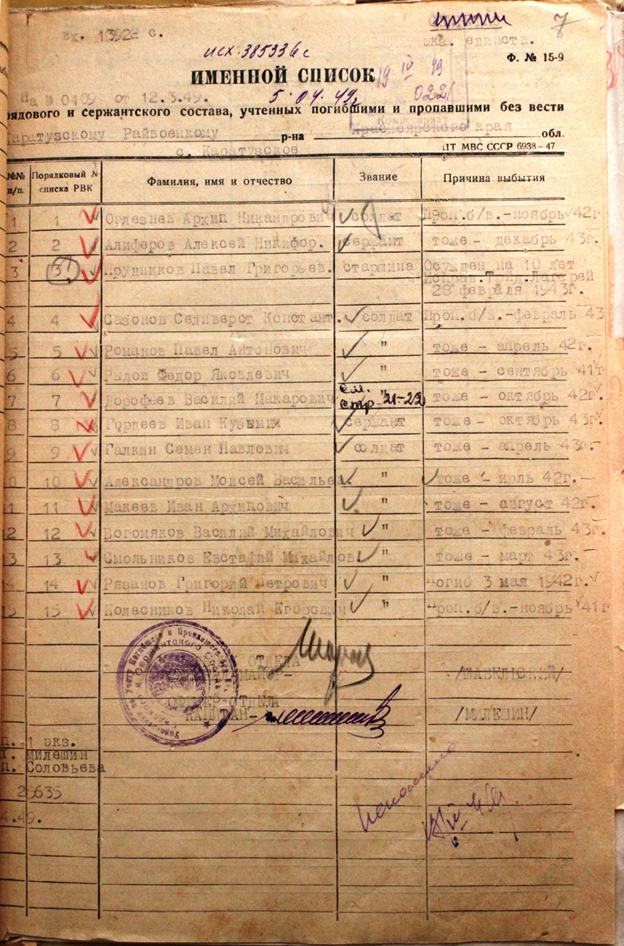 вх. 13928 с.
исх. 385336с
7
экз. единств.
ИМЕННОЙ СПИСОК
Ф. № 15-9
19 IV 49
022
На № 0109 от 12.3.49.
5.04.49
рядового и сержантского состава, учтенных погибшими и пропавшими без вести
Каратузскому Райвоенкому р-на Красноярского края обл.
с. Каратузское
ЦТ МВС СССР 6938-47
№№ п/п. Порядковый № списка РВК Фамилия, имя и отчество Звание Причина выбытия
1 1 Огдезнев Архип Никандрович солдат Проп.б/в.-ноябрь 42г
2 2 Алиферов Алексей Никифор. сержант тоже - декабрь 43г.
3 3 Прудников Павел Григорьев. старшина Осужден на 10 лет
28 февраля 1943г.
4 4 Сазонов Селиверст Констант. солдат Проп.б/в.-февраль 43
5 5 Романов Павел Антонович " тоже - апрель 42г.
6 6 Рылов Федор Яковлевич " тоже - сентябрь 41г
7 7 Дорофеев Василий Макарович " тоже - октябрь 42г
см. стр. 21-22
8 8 Гордеев Иван Кузьмич сержант тоже - октябрь 43г.
9 9 Галкин Семен Павлович солдат тоже - апрель 43г.-
10 10 Александров Моисей Васильев " тоже - июль 42г.-
11 11 Макеев Иван Архипович " тоже - август 42г.
12 12 Богомяков Василий Михайлович " тоже - февраль 43г.
13 13 Смольников Евстафий Михайлов " тоже - март 43г.-
14 14 Рязанов Григорий Петрович " Погиб 3 мая 1942г.
15 15 Колесников Николай Егорович " Проп.б/в.-ноябрь 41г
ОТДЕЛА
МАЙОР-
ОТДЕЛА
КАПИТАН-
/МИЛЕШИН/
1 экз.
Милешин
Соловьева
25635
4.49.